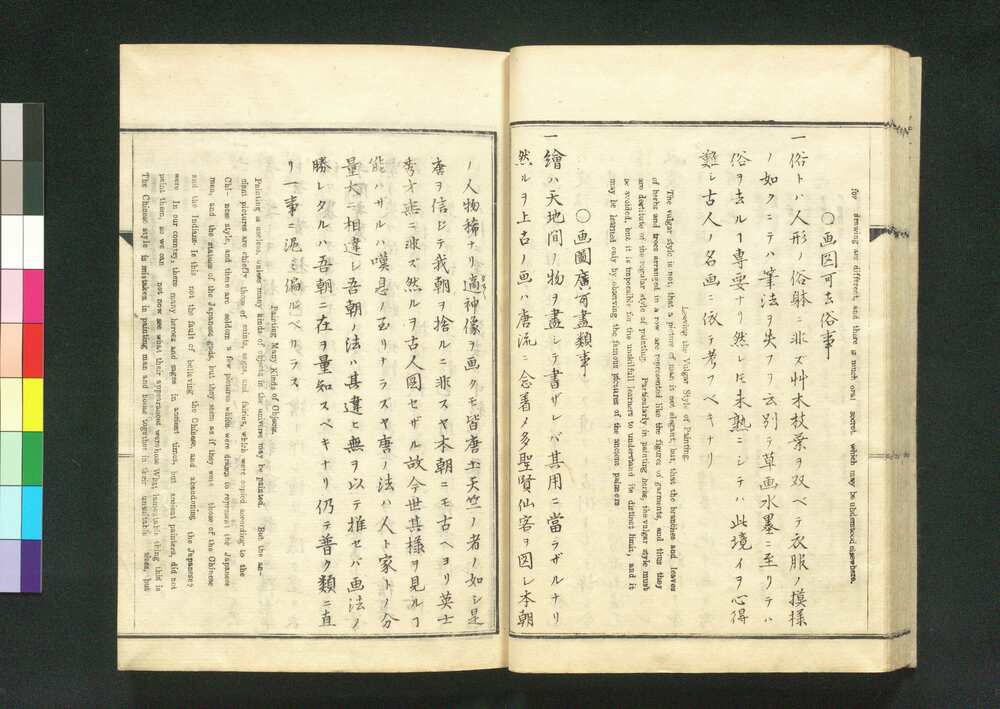 for drawing are different, and there is much oral secret, which may be understood elsewhere.
〇画図可去俗事
一俗トハ人形ノ俗躰ニ非ズ艸木枝葉ヲ双ベテ衣服ノ摸様
ノ如クニテハ筆法ヲ失フヲ云別テ草画水墨ニ至リテハ
俗ヲ去ルヿ専要ナリ然レ𪜈未熟ニシテハ此境イヲ心得
難シ古人ノ名画ニ依テ考フベキナリ
Leaving the Vulgar Style of Painting.
The vulgar style is not, that a picture of man is not elegant; but, that the branches and leaves
of herbs and trees arranged in a row are represented like the figures of garments, and thus they
are destitute of the regular style of painting. Particularly in painting herbs, the vulgar style must
be avoided, but it is imposible for the unskilfull learners to understand its distinct limit, and it
may be learned only by observing the famous pictures of the ancient painters
〇画圖廣可畫類事
一繪ハ天地間ノ物ヲ畫シテ書ザレバ其用ニ當ラザルナリ
然ルヲ上古ノ画ハ唐流ニ念着メ多聖賢仙客ヲ図レ本朝
ノ人物稀ナリ適神像ヲ画クモ皆唐土天竺ノ者ノ如シ是
唐ヲ信ジテ我朝ヲ捨ルニ非スヤ本朝ニモ古ヘヨリ英士
秀才無ニ非ズ然ルヲ古人図セザル故今世其様ヲ見ルヿ
能ハザルハ嘆息ノ至リナラズヤ唐ノ法ハ人ト家トノ分
量大ニ相違シ吾朝ノ法ハ其違ヒ無ヲ以テ推セバ画法ノ
勝レタルハ吾朝ニ在ヲ量知スベキナリ仍テ普ク類ニ直
リ一事ニ泥ミ偏ルベカラス
Painting Many Kinds of Objects.
Painting is useless, unless many kinds of objects in the universe may be painted. But the an-
cient pictures are chiefly those of saints, sages, and fairies, which were copied according to the
Chi- nese style, and there are seldom a few pictures which were drawn to represent the Japanese
men, and the statues of the Japanese gods, but they seem as if they were those of the Chinese
and the Indians. Is this not the fault of believing the Chinese, and abandoning the Japanese?
were In our country, there many heroes and sages in ancient times, but ancient painters, did not
paint them, so we can not now see what their appearances were
The Chinese style is mistaken in painting man and house together in their unsuitable sizes, but